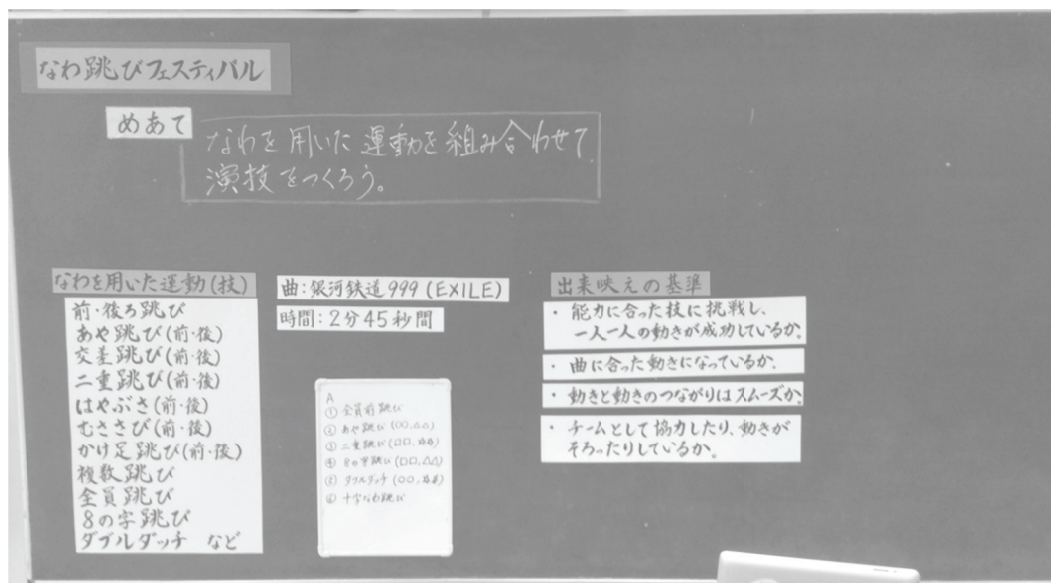 なわ跳びフェスティバル
めあて
なわを用いた運動を組み合わせて
演技をつくろう。
なわを用いた運動(技)
前・後ろ跳び
あや跳び(前・後)
交差跳び(前・後)
二重跳び(前・後)
はやぶさ(前・後)
むささび(前・後)
かけ足跳び(前・後)
複数跳び
全員跳び
8の字跳び
ダブルダッチ など
曲:銀河鉄道999(EXILE)
時間:2分45秒間
A
① 全員前跳び
② あや跳び(○○,△△)
③ 二重跳び(□□,☆☆)
④ 8の字跳び(□□,△△)
⑤ ダブルダッチ(○○,☆☆)
⑥ 十字なわ跳び
出来映えの基準
・能力に合った技に挑戦し、
一人一人の動きが成功しているか。
・曲に合った動きになっているか。
・動きと動きのつながりはスムーズか。
・チームとして協力したり、動きが
そろったりしているか。